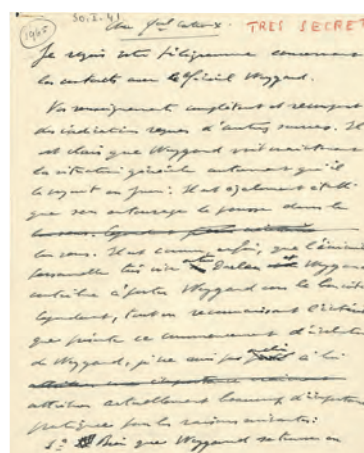 1965
30.I.41
TRES SECRET
Au Gral Catroux.
Je reçois votre télégramme concernant
les contacts avec le Général Weygand.
Vos renseignements complètent et recoupent
des indications reçues d'autres sources. Il
est clair que Weygand voit maintenant
la situation générale autrement qu'il
la voyait en juin. Il est également établi
que son entourage le pousse dans le
ce sens. Il est connu, enfin, que l'
personnelle très vive entre Darlan et Weygand
contribue à porter Weygand vers la
Cependant, tout en reconnaissant l'intérêt
que présente ce commencement d'évolution
de Weygand, je ne suis pas à lui
attribuer actuellement beaucoup d'
pratique pour les raisons suivantes:
1° Bien que Weygand se trouve en